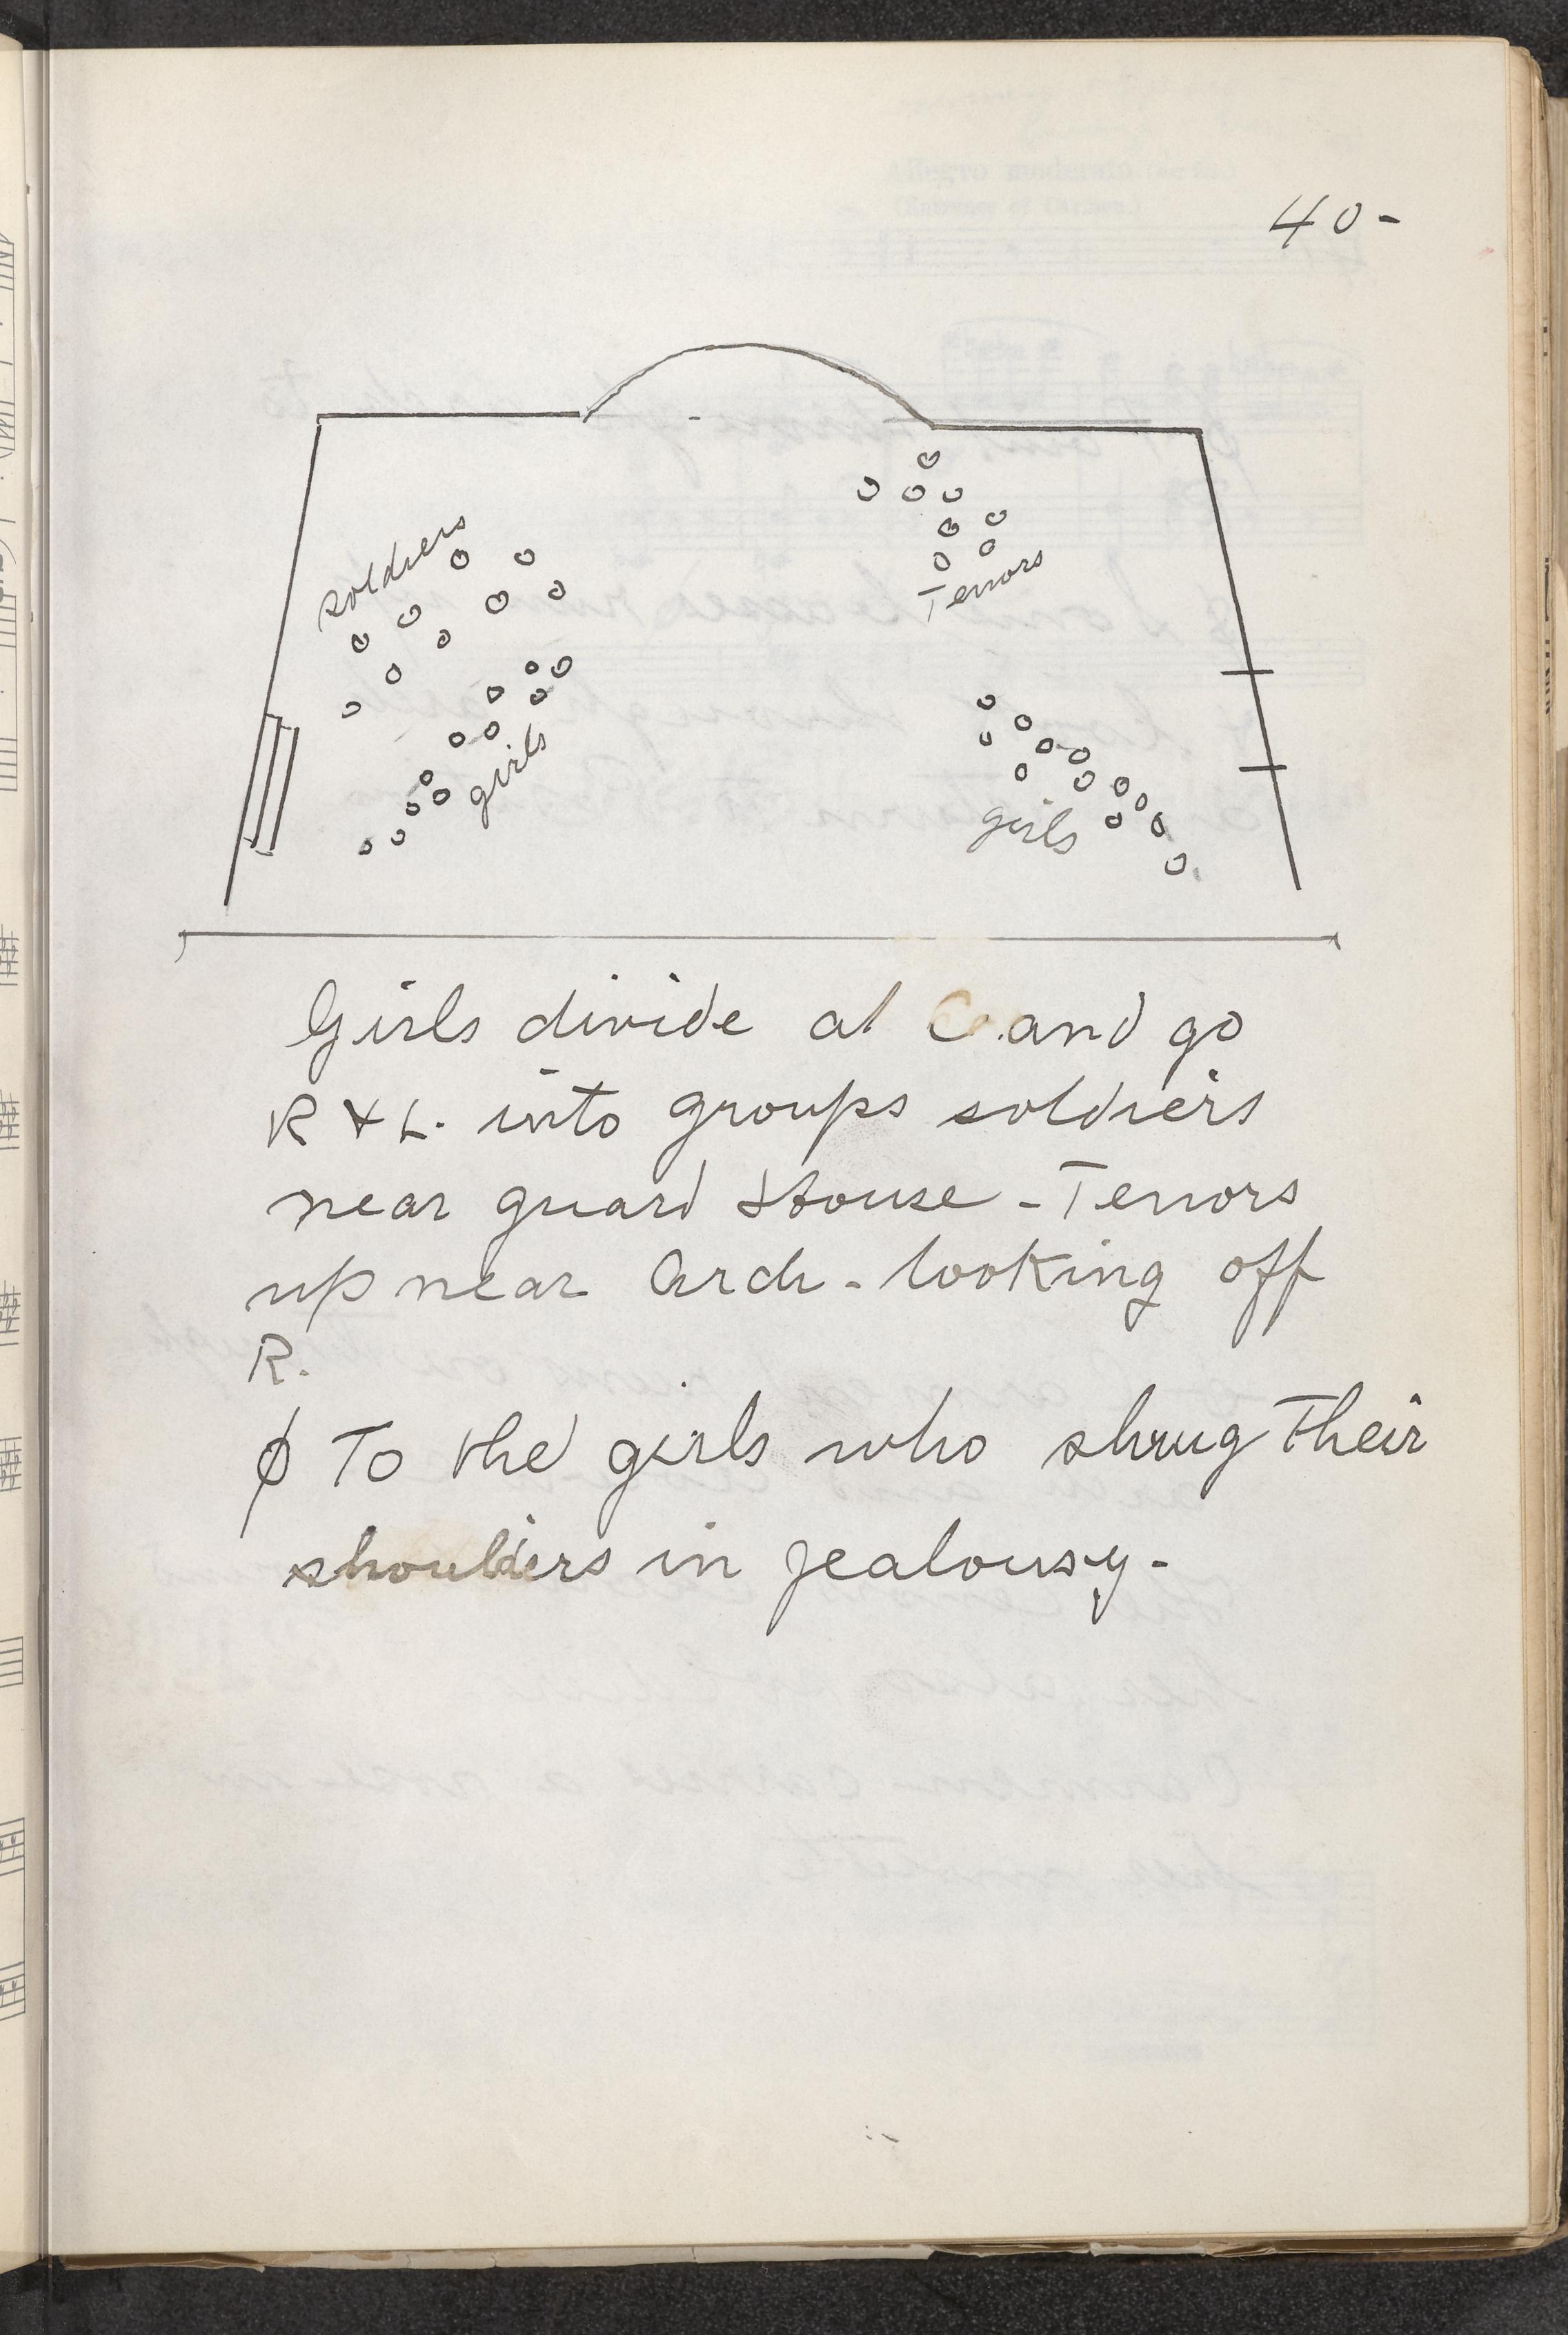 40-
soldiers
Tenors
girls
girls
Girls divide at C. and go
R & L. into groups soldiers
near guard House - Tenors
up near Arch - looking off
R.
ϕ To the girls who shrug their
shoulders in jealousy -